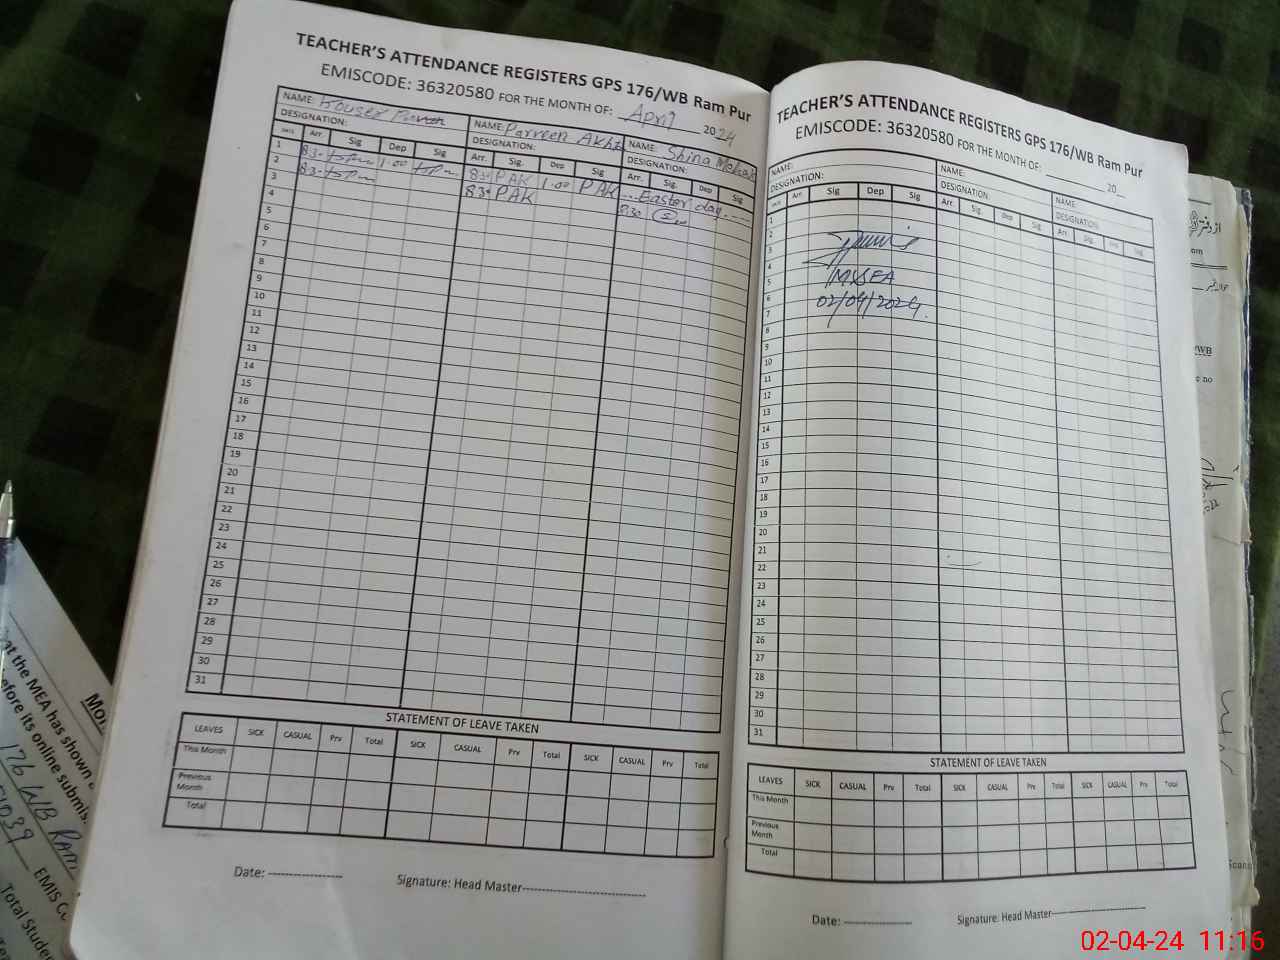 TEACHER'S ATTENDANCE REGISTERS GPS 176/WB Ram Pur
EMISCODE: 36320580 FOR THE MONTH OF: April 2024
NAME: NAME: Parveen NAME: Shina
DESIGNATION: DESIGNATION: DESIGNATION:
DATE Arr. Sig Dep Sig Arr. Sig. Dep Sig Arr. Sig. Dep Sig
1 1-00 PAK 1-00 PAK Easter day
2 PAK 830
3
4
5
6
7
8
9
10
11
12
13
14
15
16
17
18
19
20
21
22
23
24
25
26
27
28
29
30
31
STATEMENT OF LEAVE TAKEN
LEAVES SICK CASUAL Prv Total SICK CASUAL Prv Total SICK CASUAL Prv Total
This Month
Previous
Month
Total
Date: ------------------ Signature: Head Master------------------------------
TEACHER'S ATTENDANCE REGISTERS GPS 176/WB Ram Pur
EMISCODE: 36320580 FOR THE MONTH OF: 20
NAME: NAME: NAME:
DESIGNATION: DESIGNATION: DESIGNATION:
DATE Arr. Sig Dep Sig Arr. Sig. Dep Sig. Arr. Sig.
1
2
3
4
5
6
7
8
9
10
11
12
13
14
15
16
17
18
19
20
21
22
23
24
25
26
27
28
29
30
31
02/04/2024.
STATEMENT OF LEAVE TAKEN
LEAVES SICK CASUAL Prv Total SICK CASUAL Prv Total SICK CASUAL Prv Total
This Month
Previous
Month
Total
Date: ---------------- Signature: Head Master-----------------------
at the MEA has shown
efore its online submis
176 WB Ram
EMIS
Total Studen
/WB
e no
02-04-24 11:16